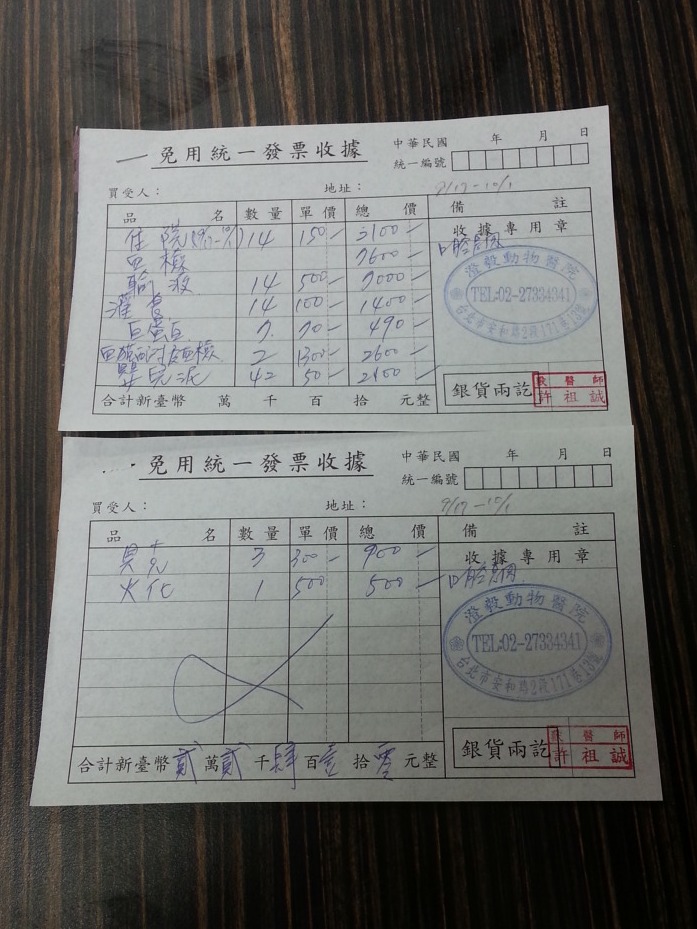 免用統一發票收據
中華民國 年 月 日
統一編號
買受人： 地址： 9/17-10/1
品 名 數量 單價 總 價 備 註
住院(9/17-10/1) 14 150- 2100- 收據專用章
血檢 7600-
輸液 14 500- 7000-
灌食 14 100- 1400-
白蛋白 7. 70- 490-
2 1300- 2600-
42 50- 2100-
澄毅動物醫院
TEL:02-27334341
台北市安和路2段171巷12號
合計新臺幣 萬 千 百 拾 元整
銀貨兩訖
獸醫師
許祖誠
免用統一發票收據
中華民國 年 月 日
統一編號
買受人： 地址： 9/17-10/1
品 名 數量 單價 總 價 備 註
3 300- 900- 收據專用章
火化 1 500 500-
澄毅動物醫院
TEL:02-27334341
台北市安和路2段171巷12號
合計新臺幣貳萬貳千肆百壹拾零元整
銀貨兩訖
獸醫師
許祖誠